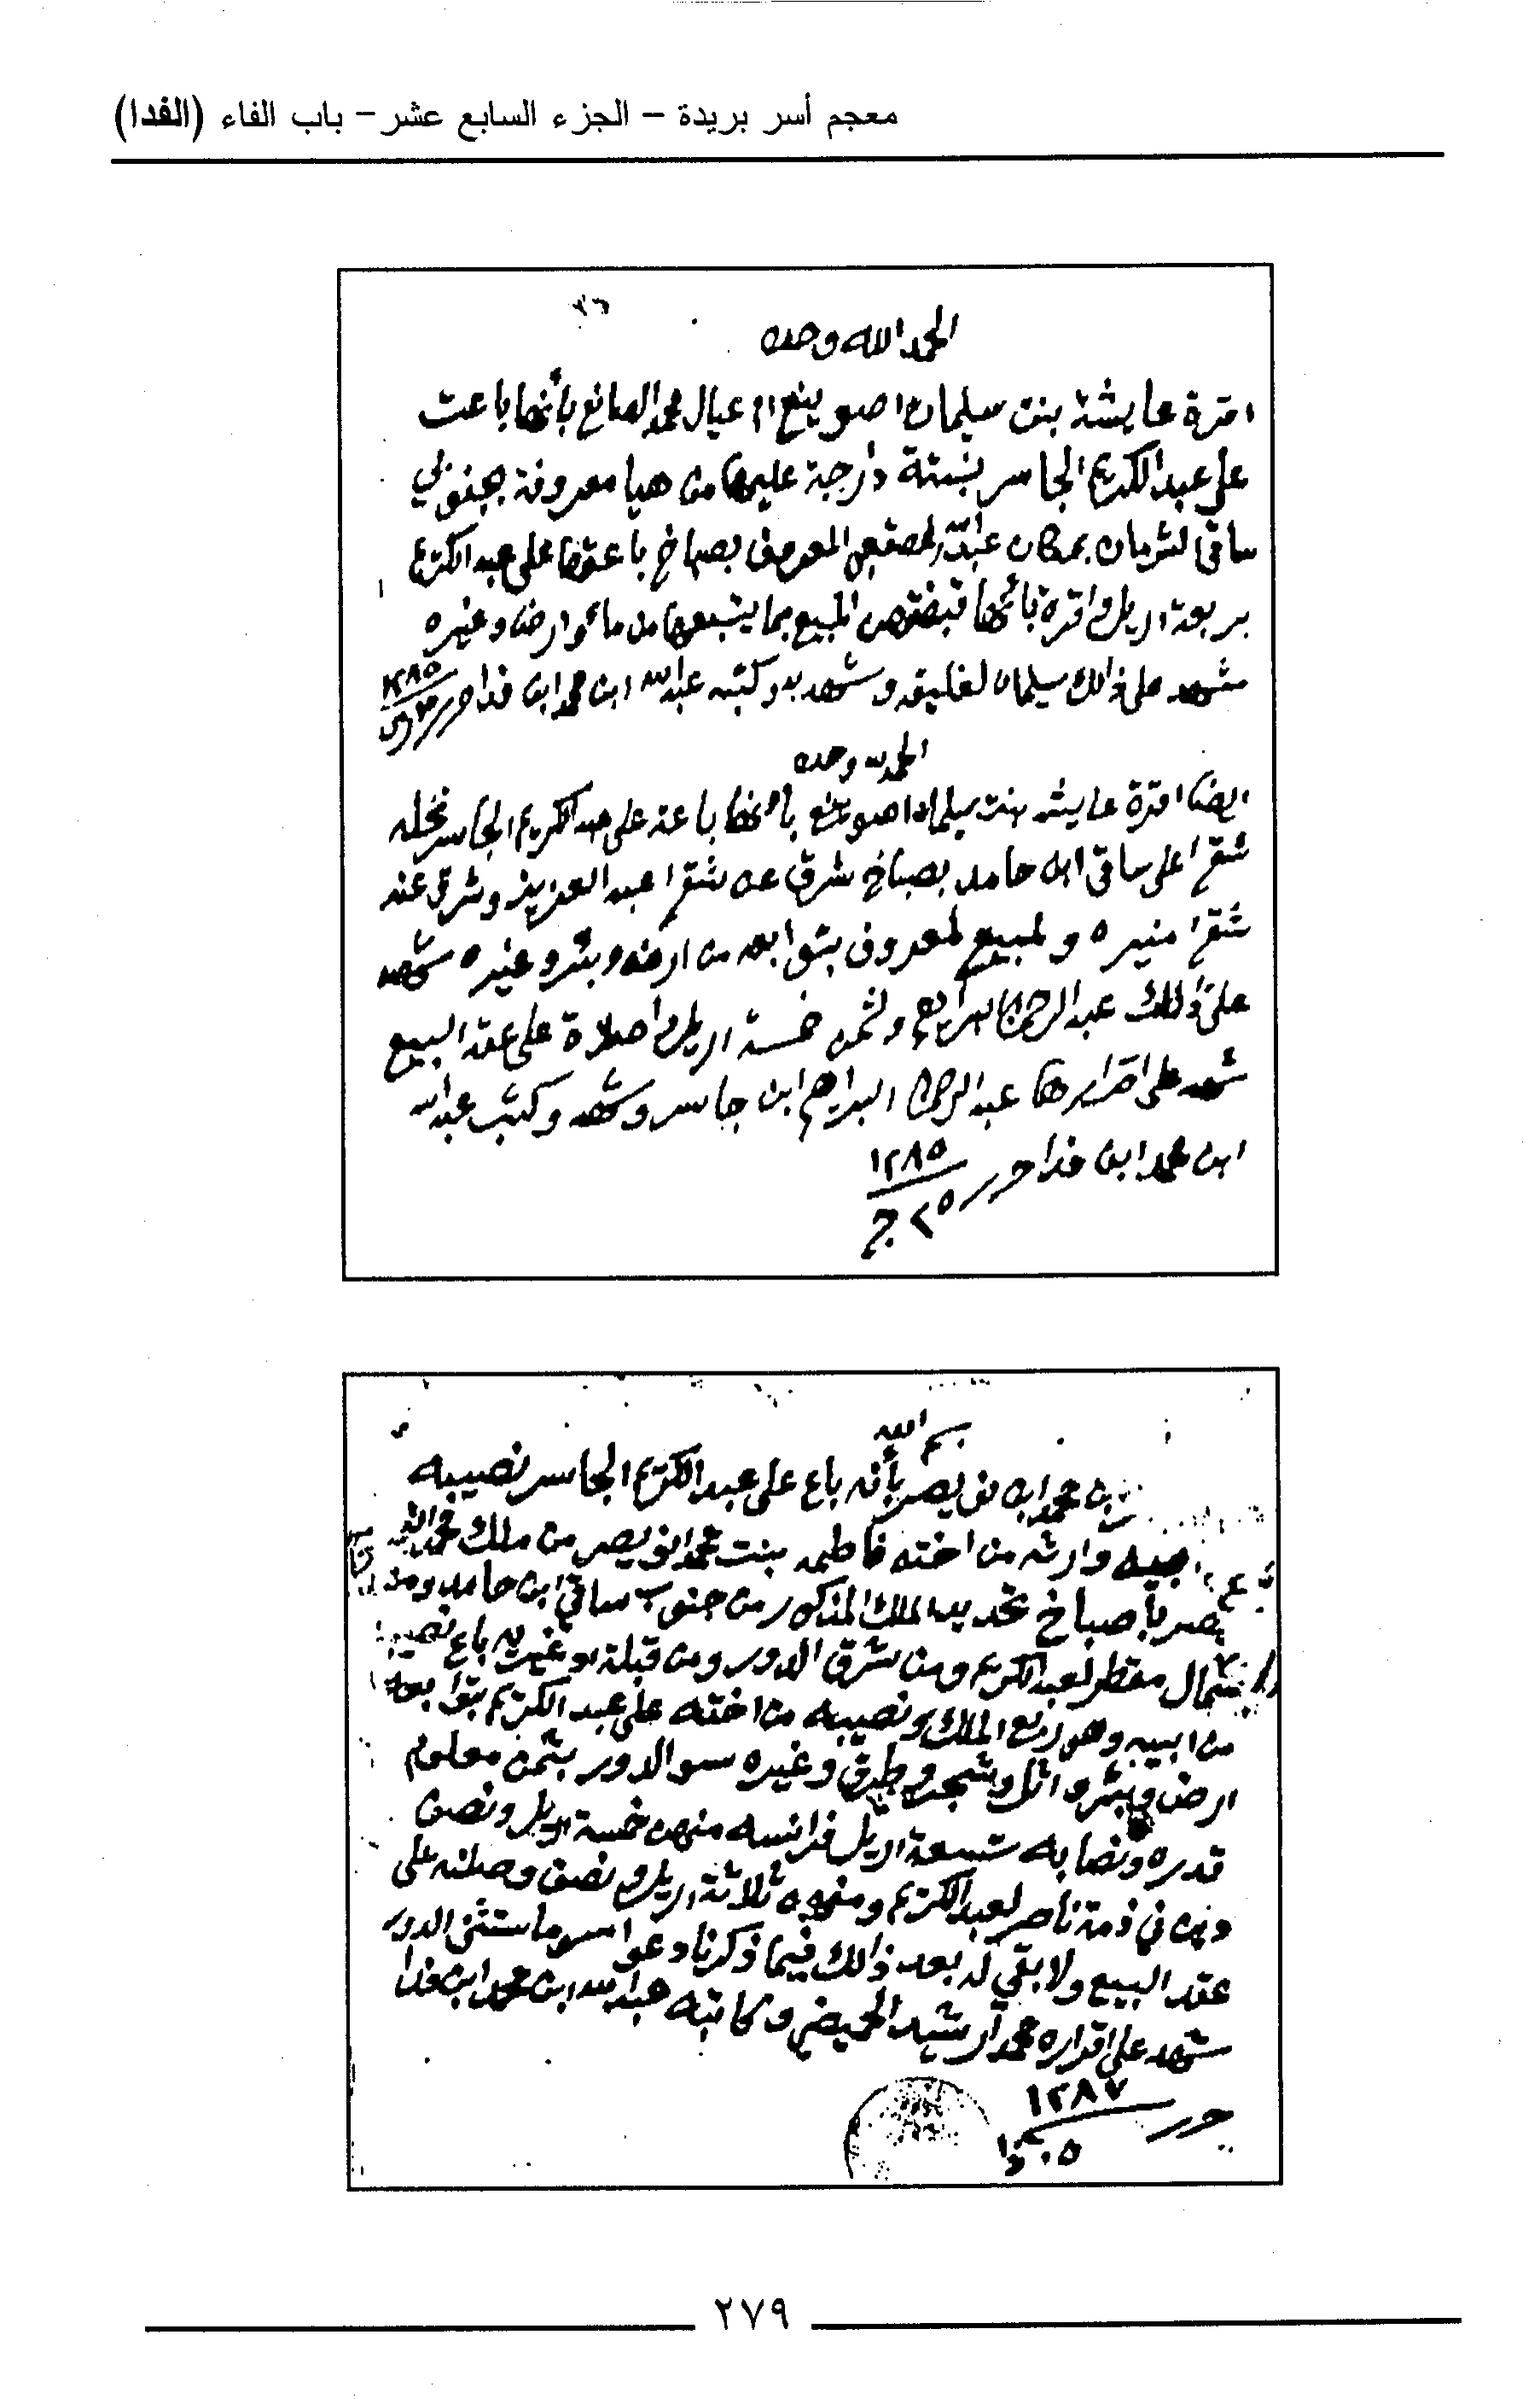 معجم أسر بريدة – الجزء السابع عشر – باب الفاء (الفدا)
٣٦
الحمد الله وحده
اقرة عايشة بنت سليمان اصوينع ام عيال محمد الصانع بأنها باعت
على عبدالكريم الجاسر دارجة عليها من هيا معروفة بجنوبي
ساقي لشرمان بمكان عبدالله المعروف بصباخ باعتها على عبدالكريم
بربعة اريل واقرة بأنها قبضتهن المبيع بما يتبعها من ما وارض وغيره
شهد على ذالك سليمان لفليقه وشهد به وكتبه عبدالله ابن محمد ابن فدا حرر ١٢٨٥
الحمد لله وحده
ايضا اقرة عايشه بنت سليمان اصوينع بأنها باعة على عبدالكريم الجاسر نخله
شقرا على ساقي ابن حامد بصباخ شرق عن شقرا عبدالعزيز وشرق عنه
شقرا منيره ولمبيع لمعروف بتوابعه من ارض وبئر وغيره شهد
على ذالك عبدالرحمن البراهيم ولثمن خمسة اريل واصلاة على عقد البيع
شهد على اقرارها عبدالرحمن البراهيم ابن جاسر وشهد وكتب عبدالله
ابن محمد ابن فدا حرر ١٢٨٥
٢٥ ج
بسم الله
بن محمد ابن نويصر بأنه باع على عبدالكريم الجاسر نصيبه
وارثه من اخته فاطمه بنت محمد انويصر من ملك محمد
بأصباخ تحديد الملك المذكور من جنوب ساقي ابن حامد ومن
شمال مقطر لعبدالكريم ومن شرق الدور ومن قبلة باع نصيبه
من ابيه وهو ربع الملك ونصيبه من اخته على عبدالكريم بتوابعه
ارض وبئر واثل وشجر وطرق وغيره سوا الدور بثمن معلوم
قدره ونصابه تسعة اريل فرانسه منهن خمسة اريل ونصف
دين في ذمة ناصر لعبدالكريم ومنهن ثلاثة اريل ونصف وصلنه على
عقد البيع ولا بقي له بعد ذالك فيما ذكرنا دعوا سوا ما ستثني الدور
شهد على اقراره محمد ارشيد الحميضي وكاتبه عبدالله ابن محمد ابن فدا
حرر ١٢٨٧
٢٧٩